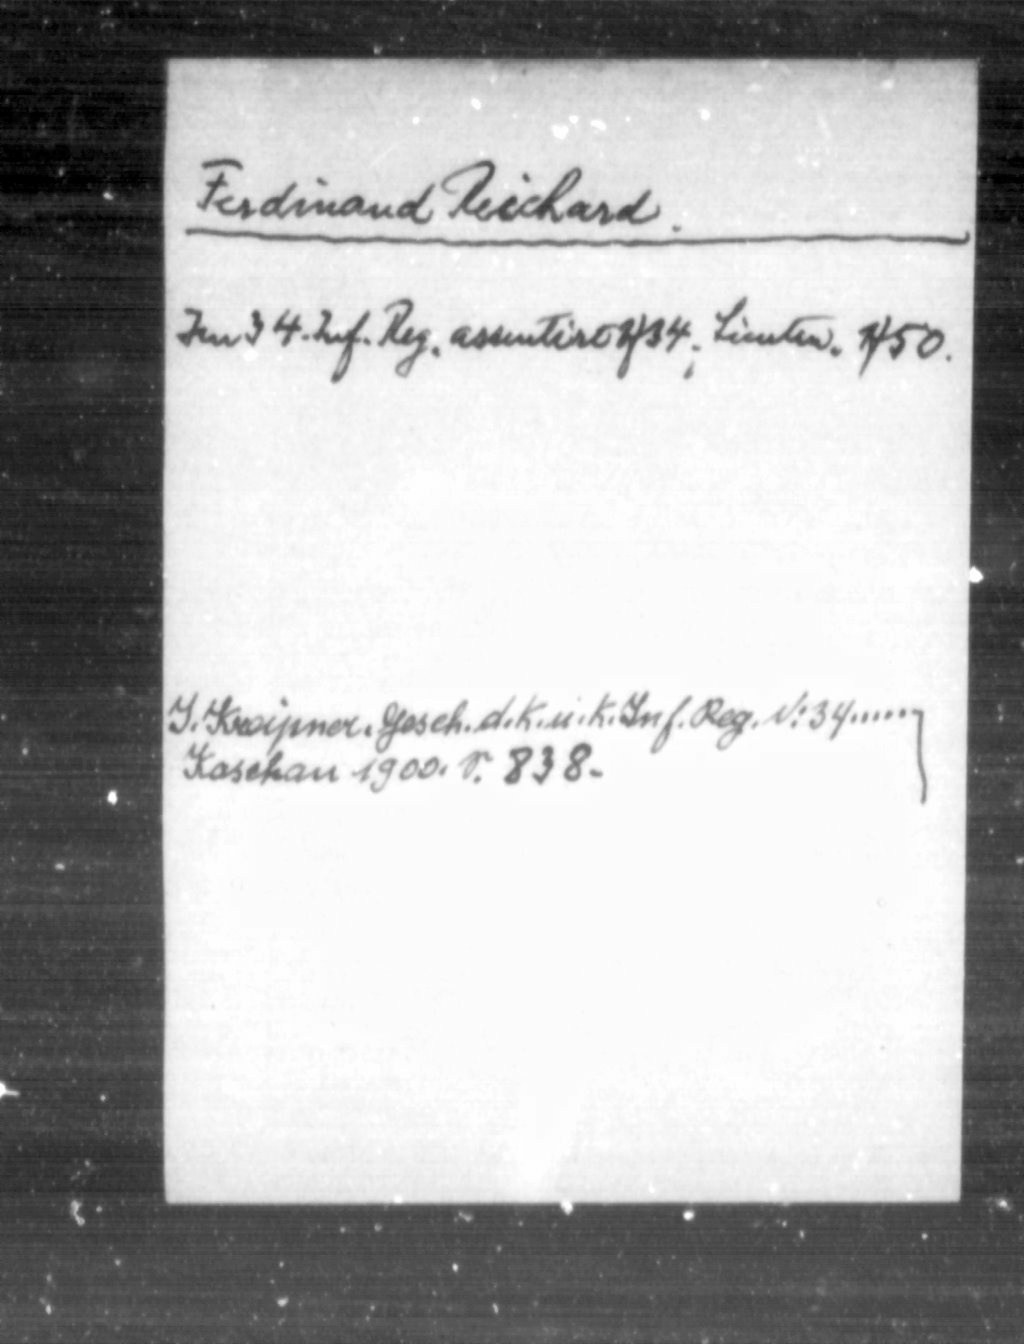 Ferdinand Reichard.
Im 34. Inf. Reg. assentirt 34; Lieuten. 50.
J. Kreipner. Gesch. d. k. u. k. Inf. Reg. N: 34......
Kaschau 1900. S. 838.